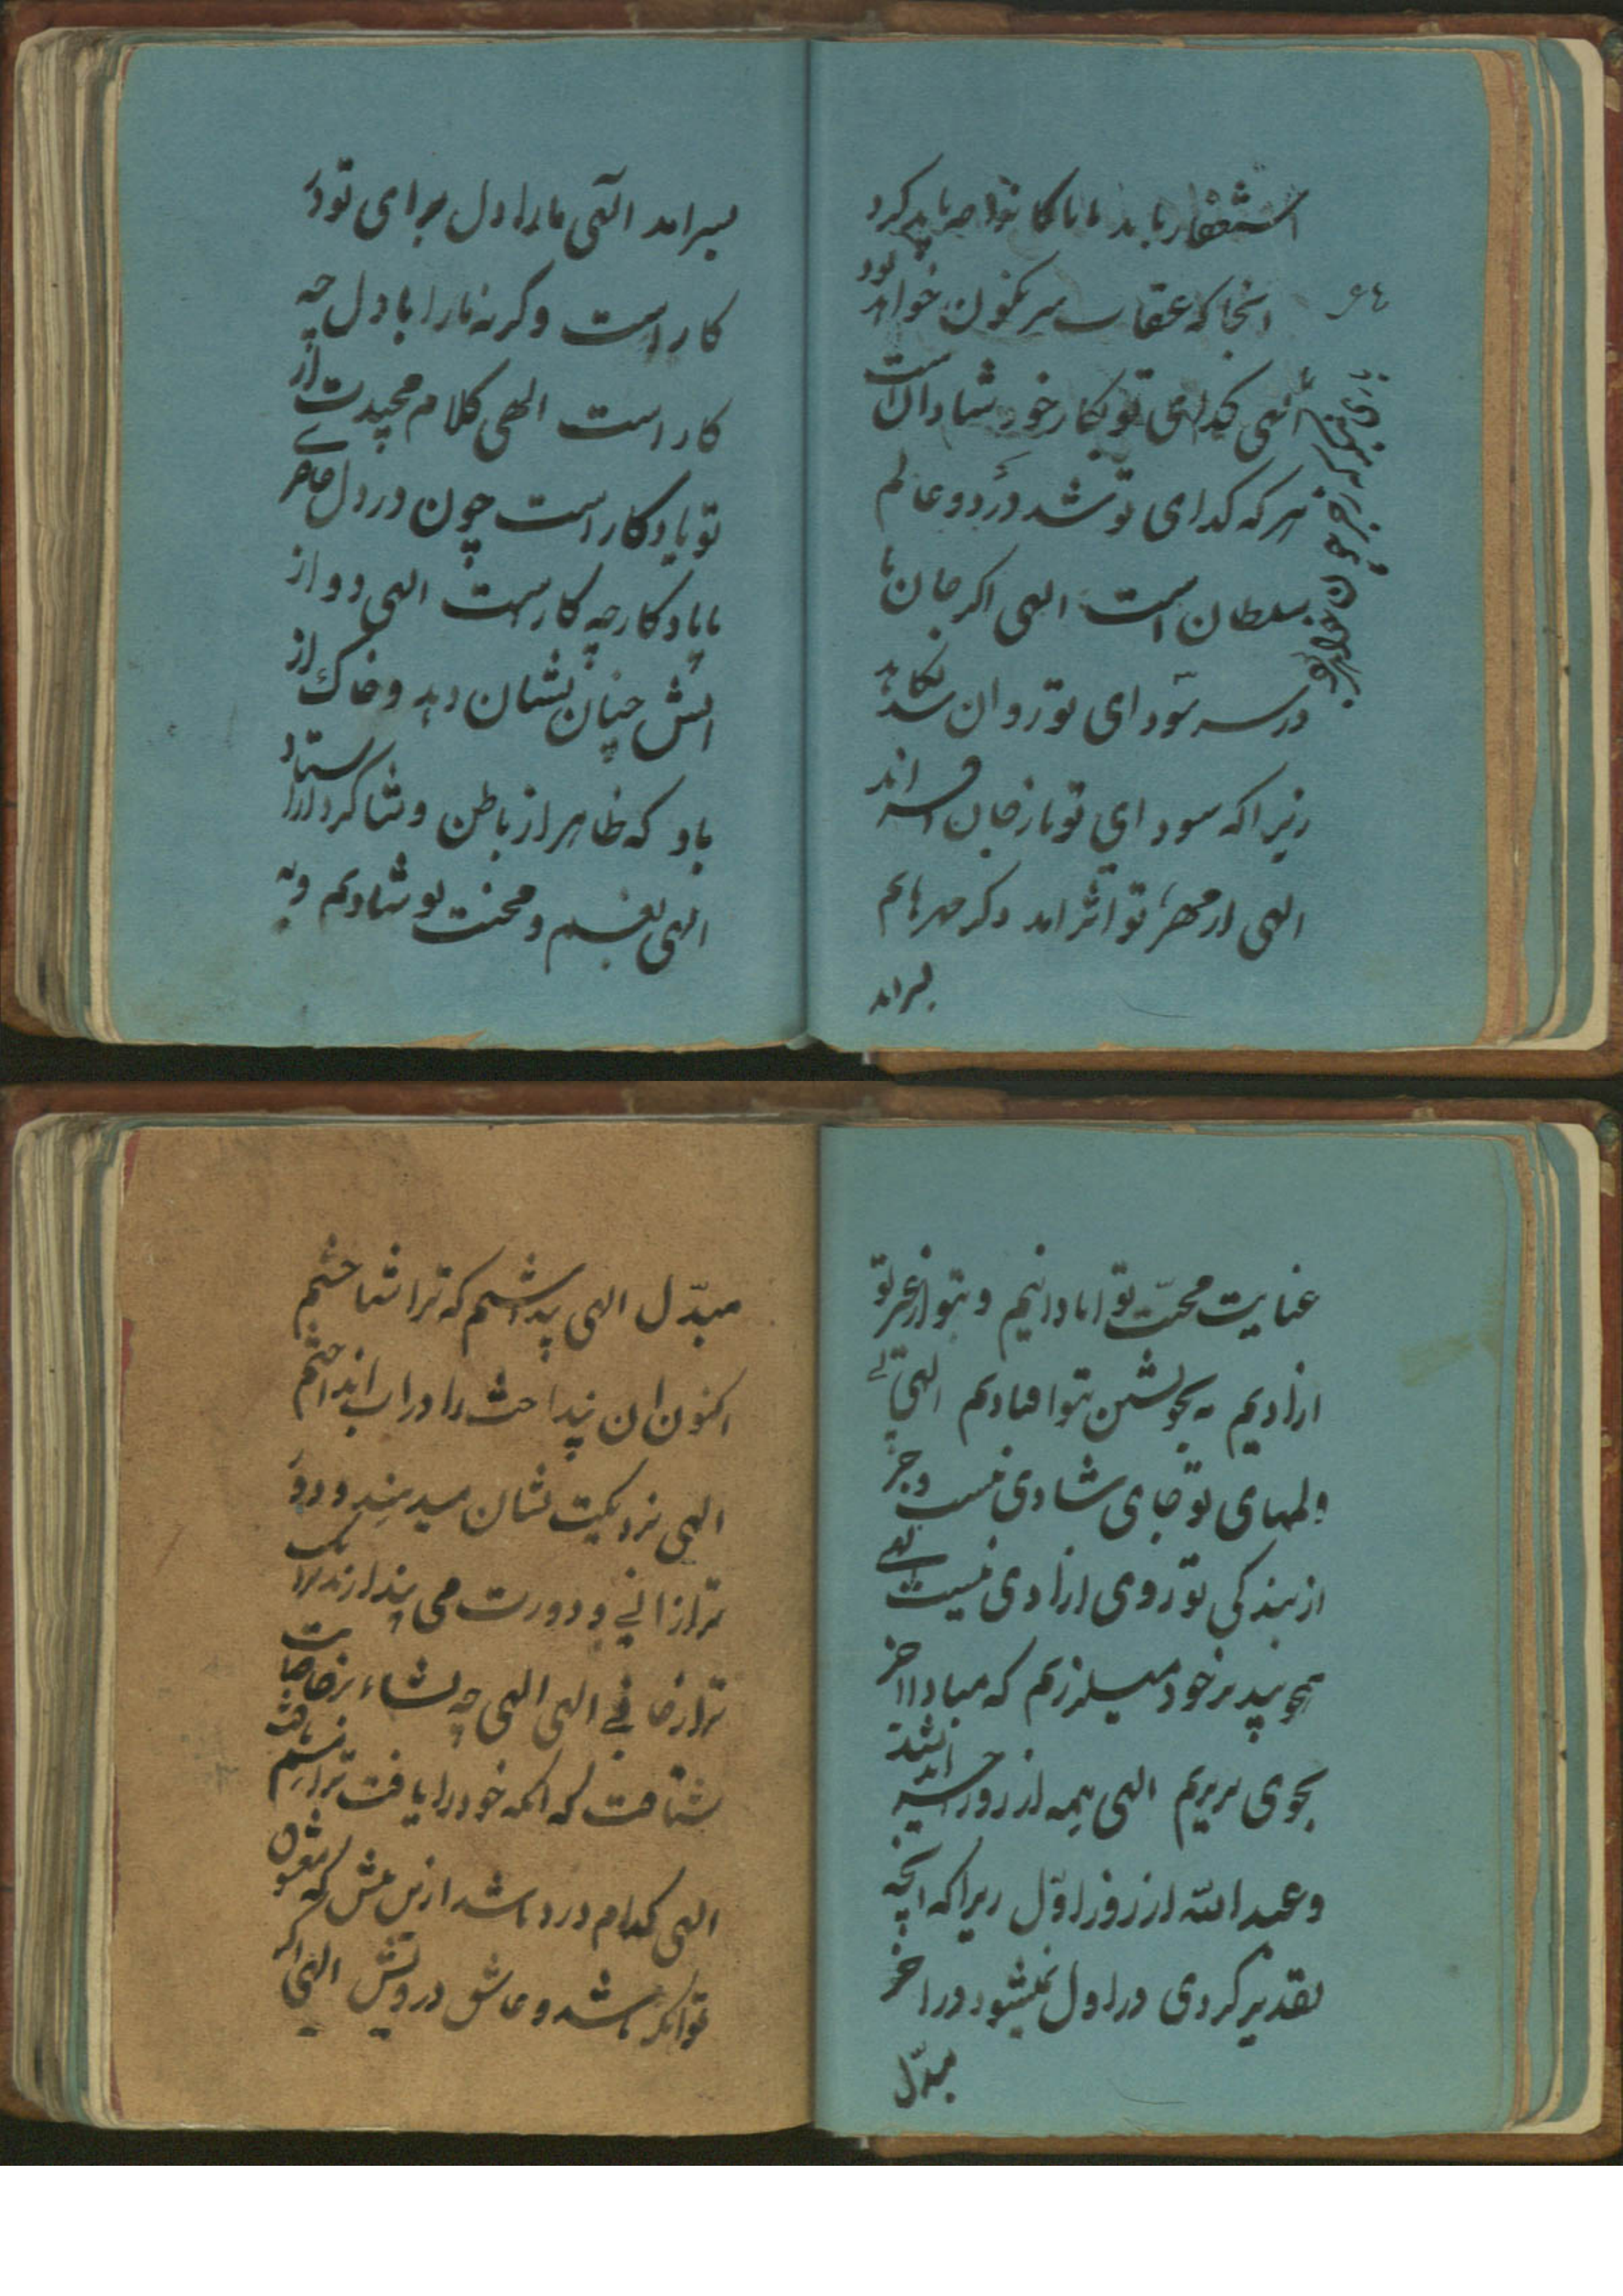 استغفار باید ما با کا نواصه باید کرد
اینجا که عقاب سرنگون خواهد بود
الهی گدای تو بکار خود شادان است
هر که گدای تو شد در دو عالم
سلطان است الهی اگر جان ما
در سر سودای تو رود ان
زیرا که سودای تو از جان
الهی از مهر تو اثر امد دگر مهر هایم
بسر امد
۶۴
بسرامد الهی مارا دل برای تو در
کار است وگرنه مارا با دل چه
کار است الهی کلام مجیدت از
تو یادکار است چون در دل حاضر
ما یادکار چه کار است الهی دو از
اتش چنان نشان دهد و خاک از
باد که ظاهر از باطن و شاکرد از استاد
الهی بغم و محنت تو شادیم و به
عنایت محبّت تو ابادانیم و بتو از غیر تو
ازادیم نه بخویشتن بتو افتادیم الهی بی
ولهای تو جای شادی نیست و جز
از بندگی تو روی ازادی نیست الهی
همچو بید بر خود میلرزم که مبادا اخر
بجوی نریزم الهی همه از روز اندیشند
و عبد الله از روز اوّل زیرا که انچه
تقدیر کردی در اول نمیشود در اخر
مبدّل
مبدّل الهی پنداشتم که ترا شناختم
اکنون ان پنداشت را در اب انداختم
الهی نزدیکیت نشان میدهند و دور
تر از انی و دورت می پندارند نزدیک
تر از جانی الهی الهی چه
شتافت که انکه خود را یافت
الهی کدام درد باشد ازین بیش که معشوق
توانکر باشد و عاشق درویش الهی اکر